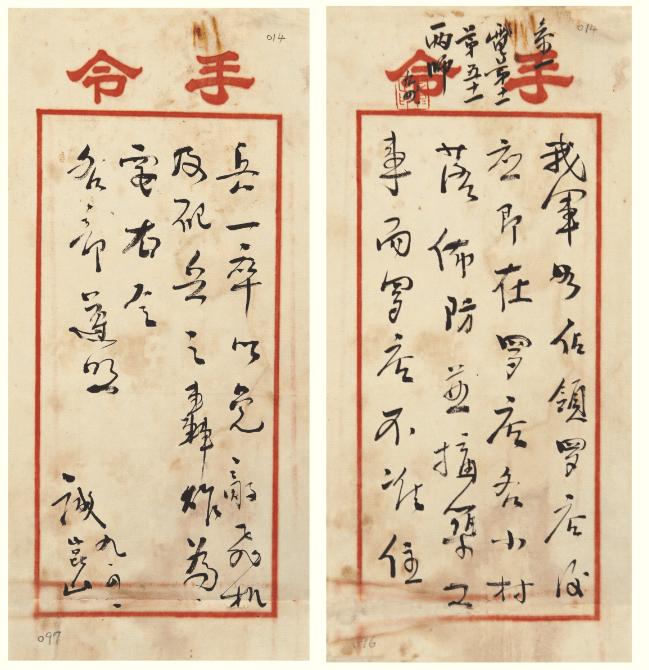 014
手令
参一
電第十一
第五十一
兩師
我軍如佔領羅店後
应即在羅店各小村
落佈防並搆築工
事而羅店不准住
014
手令
兵一卒以免敵飛机
及砲兵之轟炸為
要右令
各部遵照
誠
崑山
097